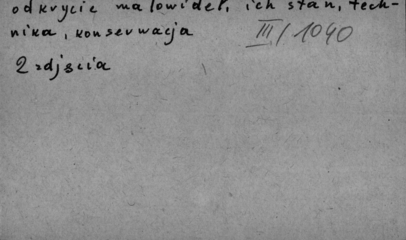 odkrycie malowideł, ich stan, tech-
nika, konserwacja III/1040
2 zdjęcia